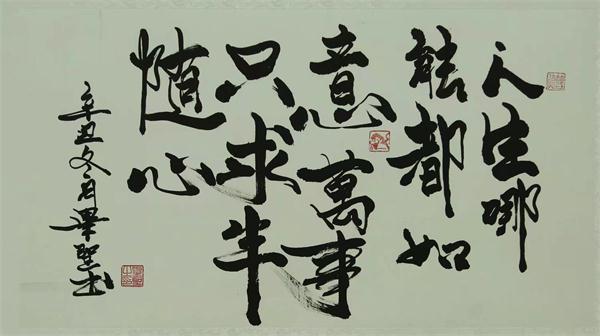 人生哪
能都如
意萬事
只求半
随心
辛丑冬月書